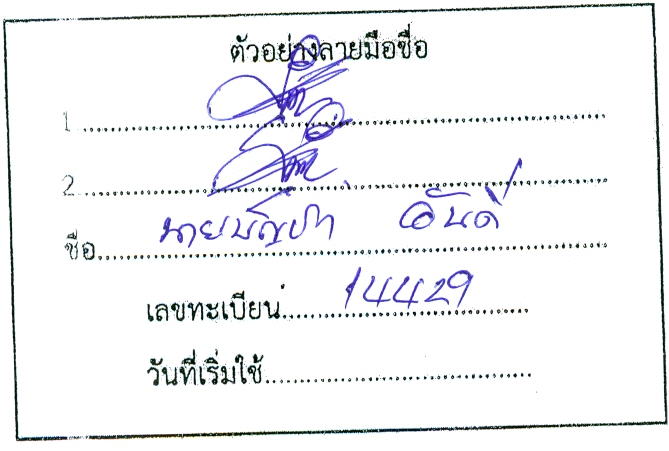 ตัวอย่างลายมือชื่อ
1
2
ชื่อ นายบัญชา อันดี
เลขทะเบียน 14429
วันที่เริ่มใช้